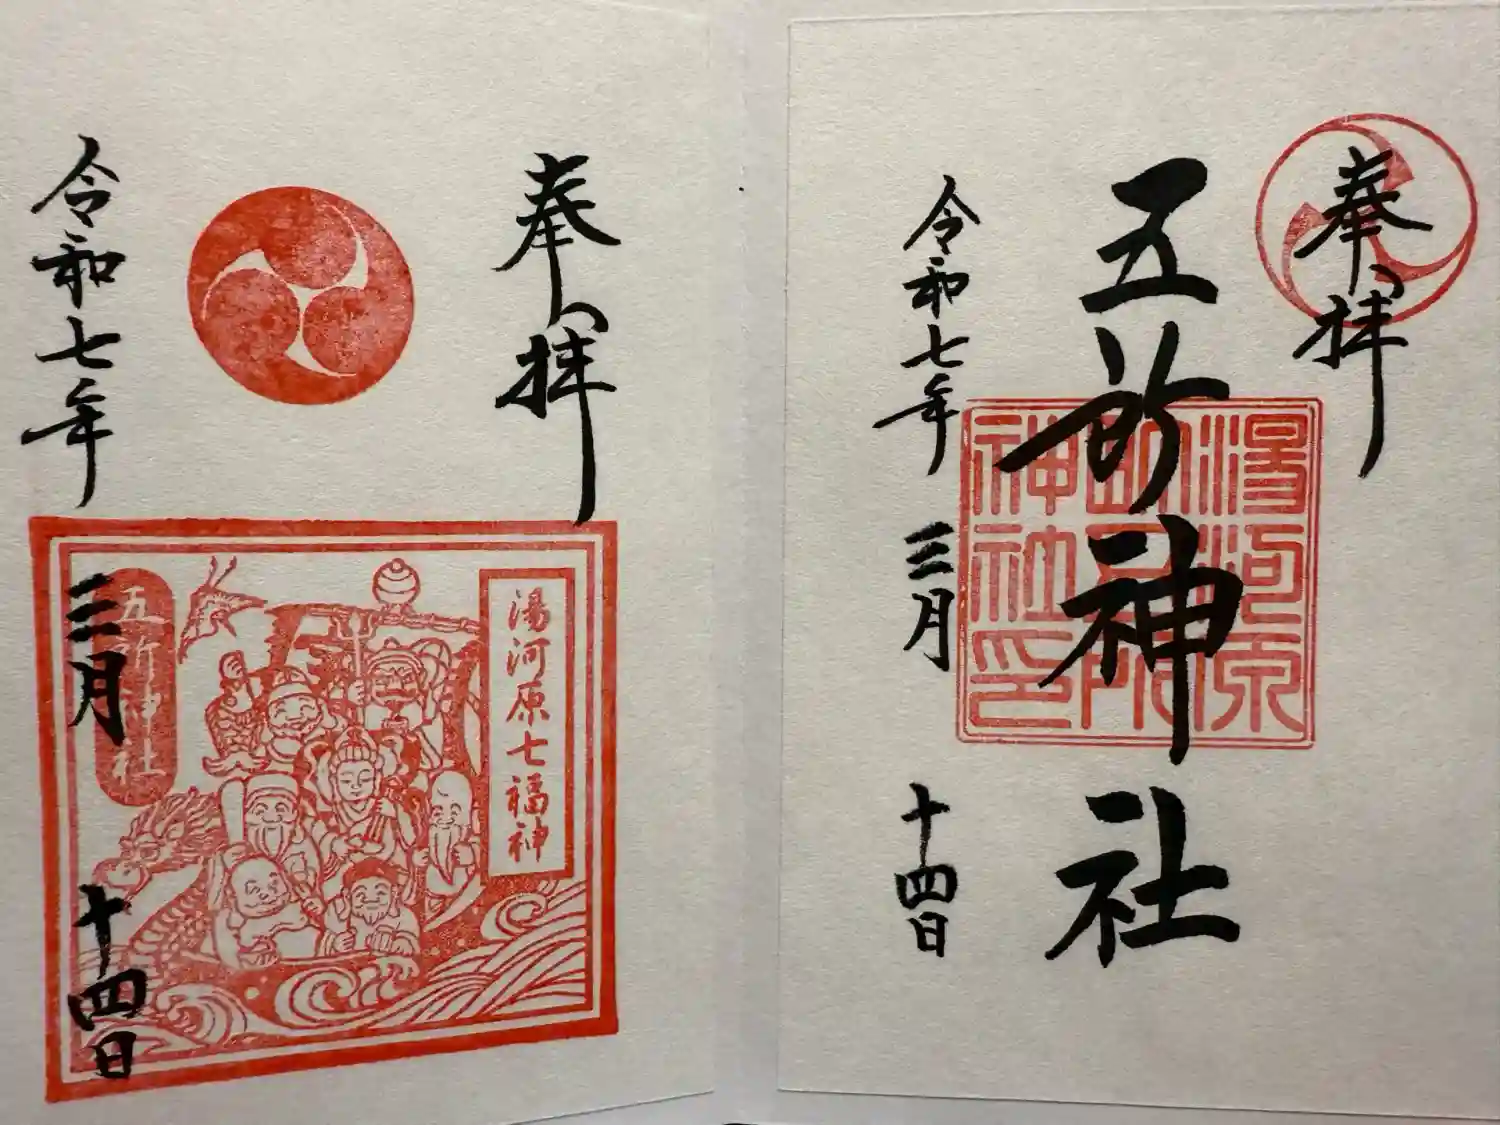 奉拝
五所神社
湯河原
五所
神社印
令和七年 三月 十四日
奉拝
湯河原七福神
五所神社
令和七年 三月 十四日